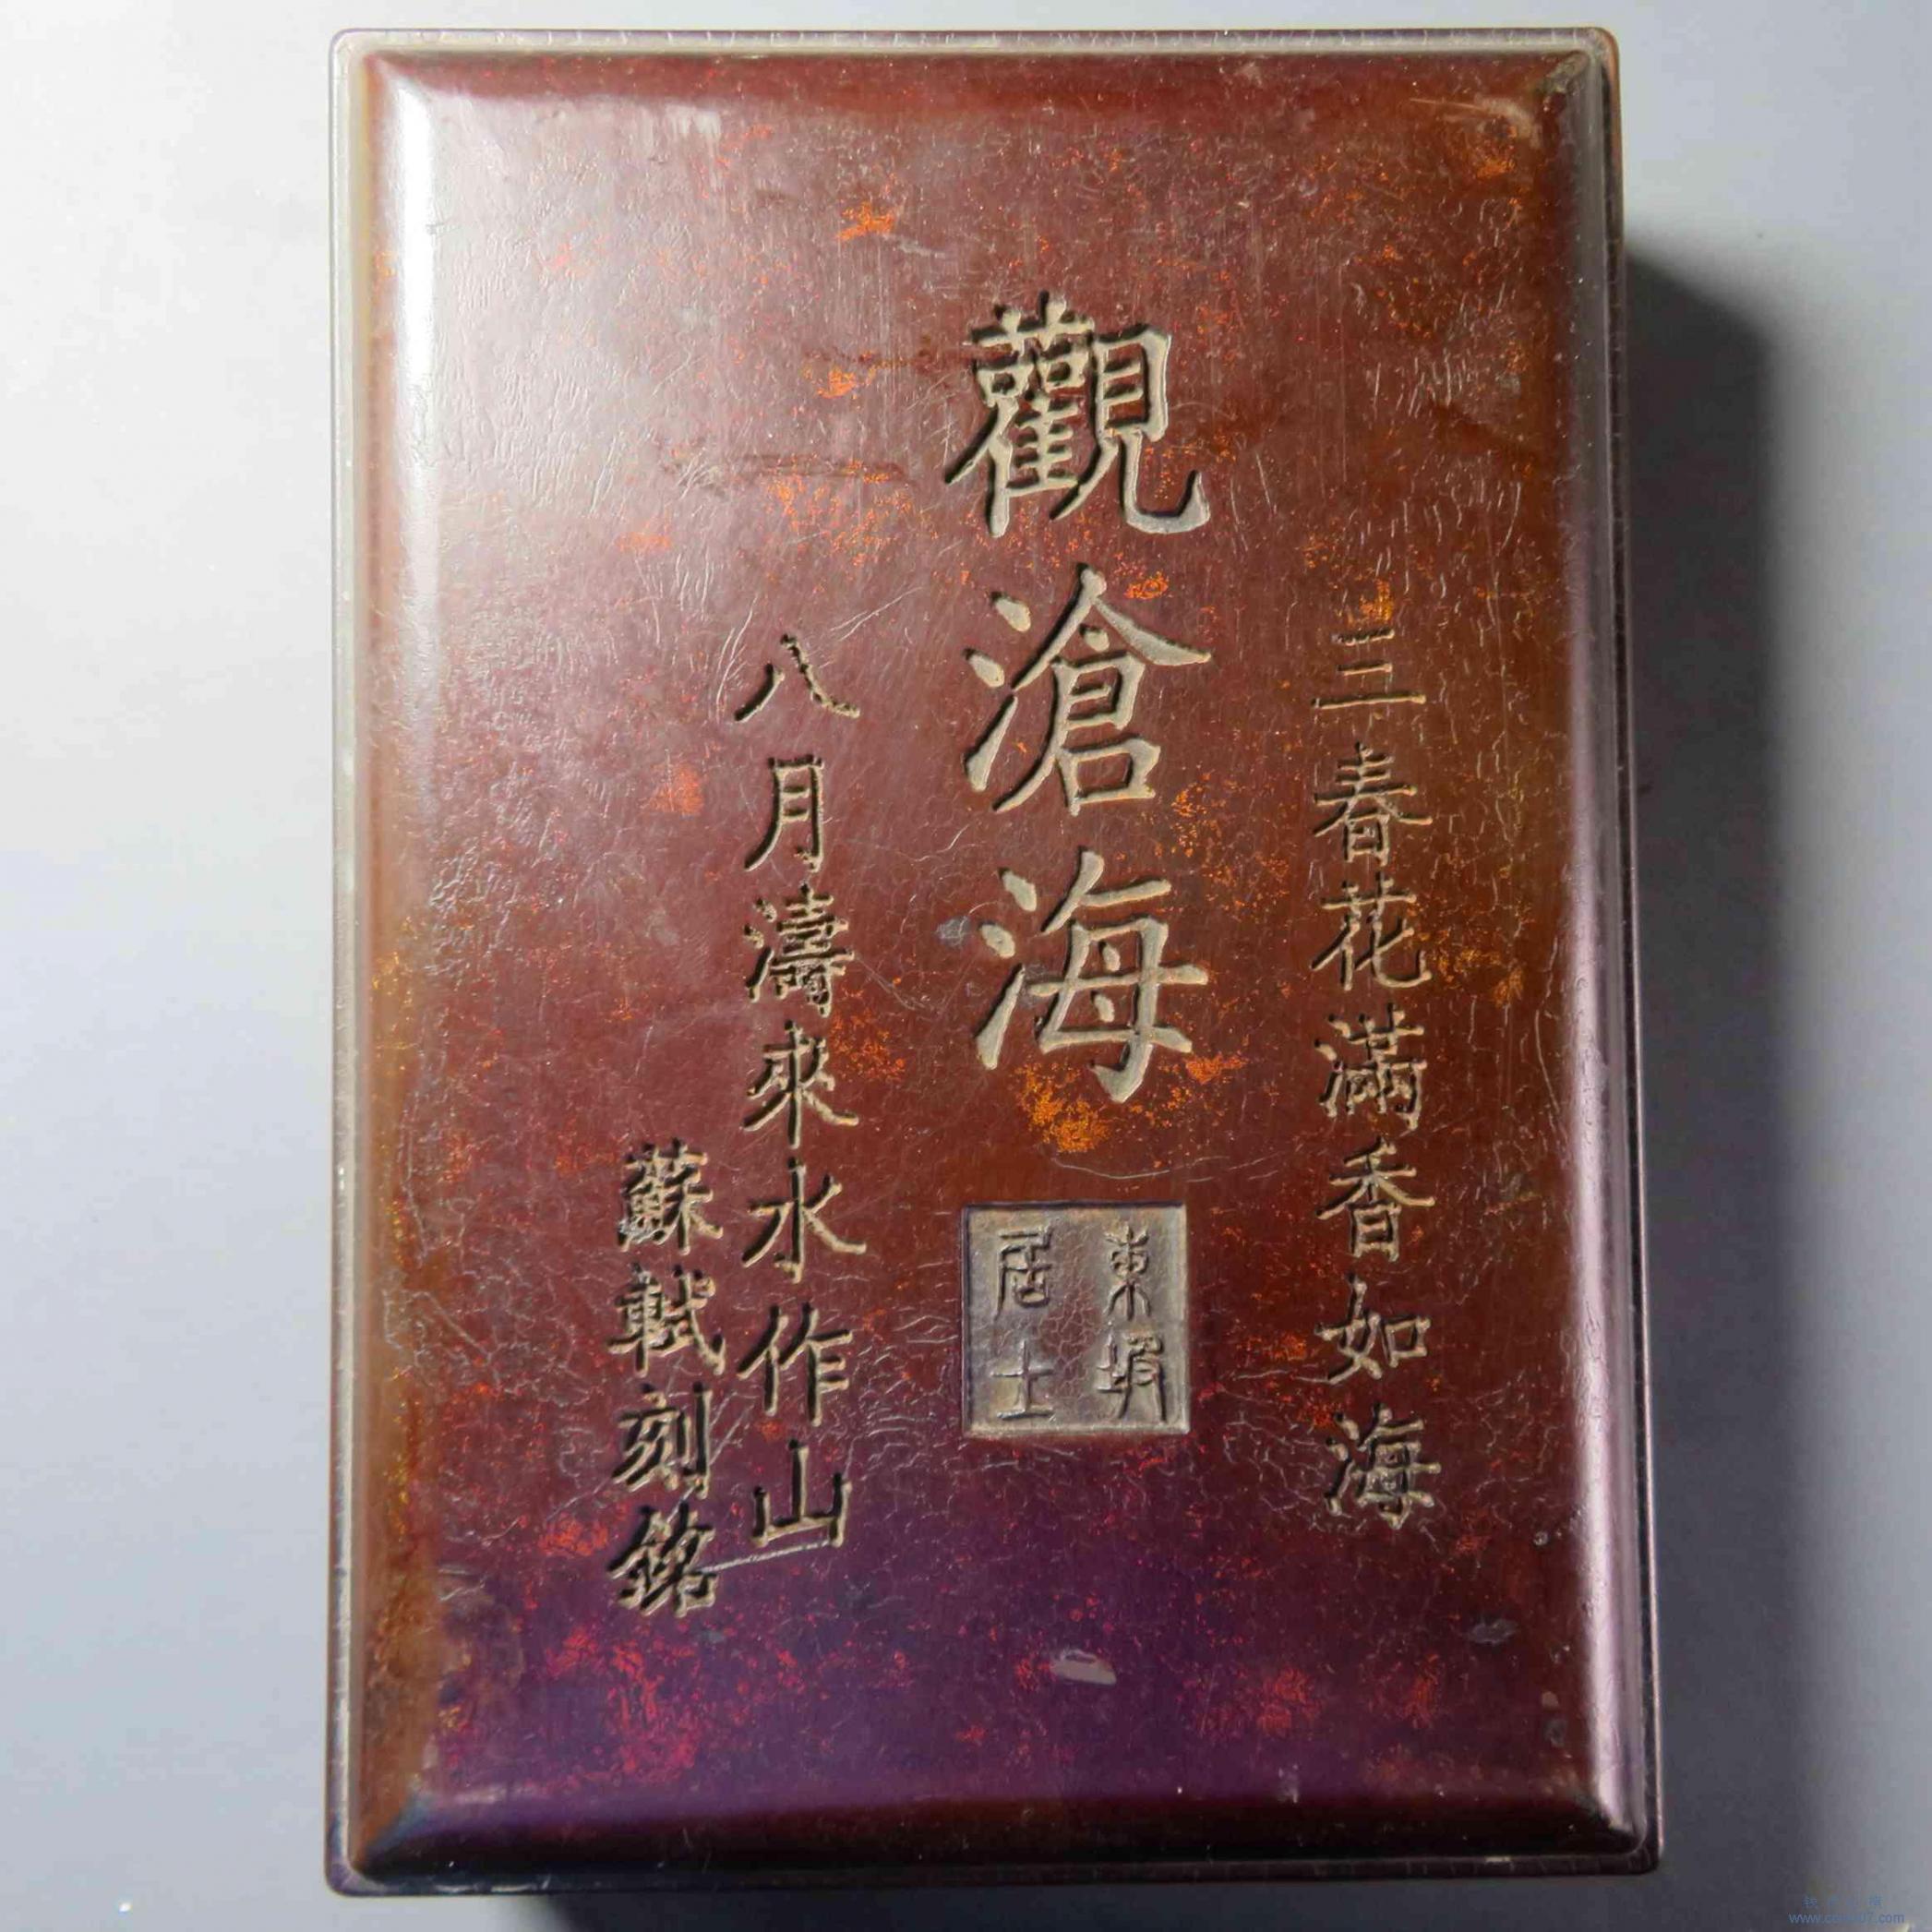 三春花滿香如海
觀滄海
東坡
居士
八月濤來水作山
蘇軾刻銘